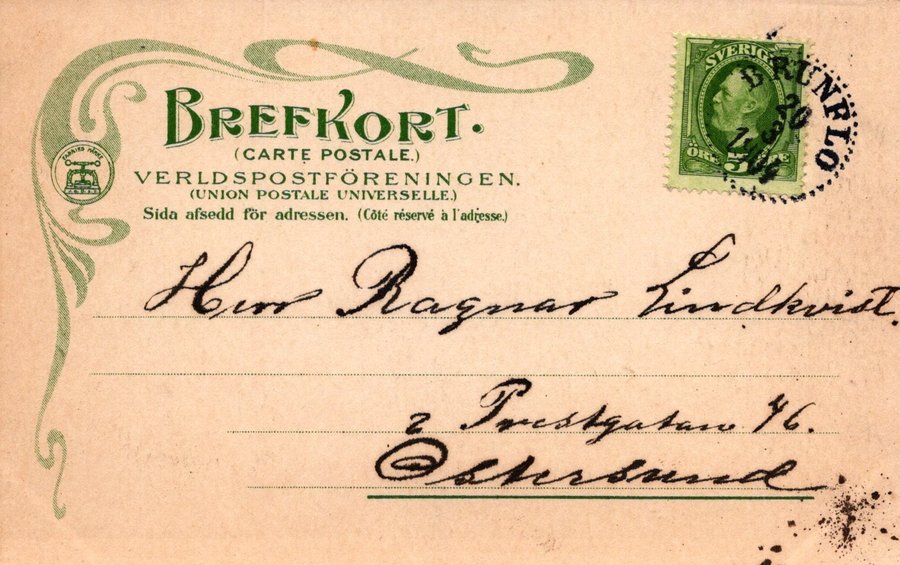 BREFKORT.
(CARTE POSTALE.)
VERLDSPOSTFÖRENINGEN.
(UNION POSTALE UNIVERSELLE.)
Sida afsedd för adressen. (Côté réservé à l'adresse.)
SVERIGE
ÖRE 5
BRUNFLO
20
Herr Ragnar Lindkvist.
2 Prestgatan 46.
Östersund